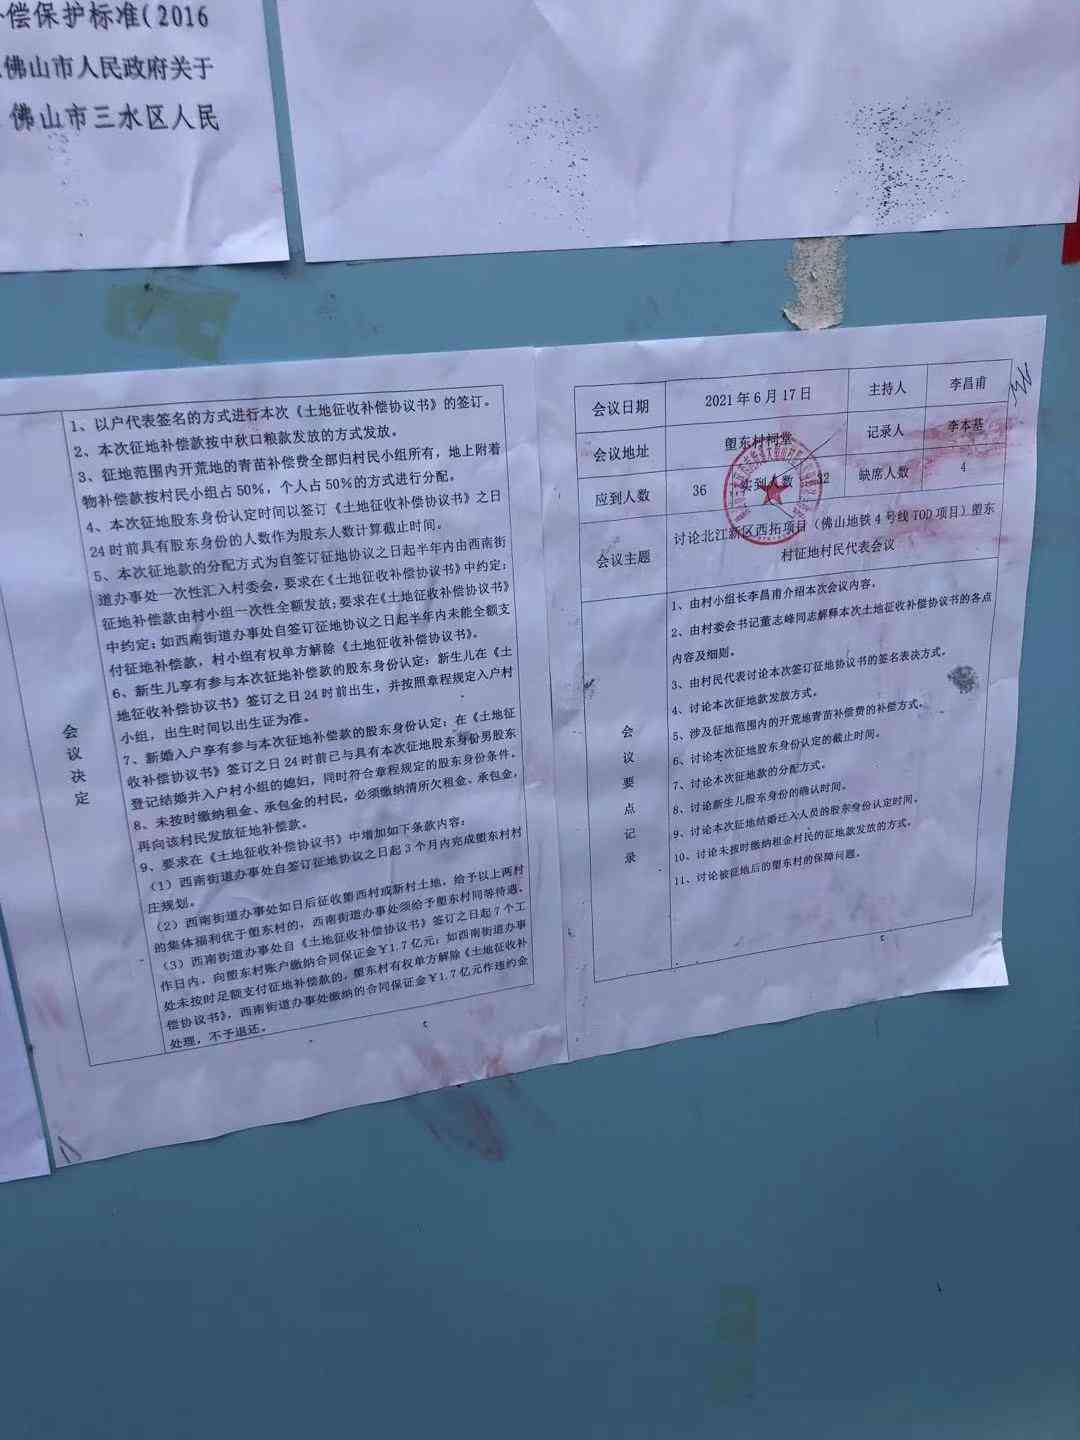 偿保护标准(2016
佛山市人民政府关于
佛山市三水区人民
会议决定
1、以户代表签名的方式进行本次《土地征收补偿协议书》的签订。
2、本次征地补偿款按中秋口粮款发放的方式发放。
3、征地范围内开荒地的青苗补偿费全部归村民小组所有，地上附着
物补偿款按村民小组占50%，个人占50%的方式进行分配。
4、本次征地股东身份认定时间以签订《土地征收补偿协议书》之日
24时前具有股东身份的人数作为股东人数计算截止时间。
5、本次征地款的分配方式为自签订征地协议之日起半年内由西南街
道办事处一次性汇入村委会，要求在《土地征收补偿协议书》中约定：
征地补偿款由村小组一次性全额发放；要求在《土地征收补偿协议书》
中约定：如西南街道办事处自签订征地协议之日起半年内未能全额支
付征地补偿款，村小组有权单方解除《土地征收补偿协议书》。
6、新生儿享有参与本次征地补偿款的股东身份认定：新生儿在《土
地征收补偿协议书》签订之日24时前出生，并按照章程规定入户村
小组，出生时间以出生证为准。
7、新婚入户享有参与本次征地补偿款的股东身份认定：在《土地征
收补偿协议书》签订之日24时前已与具有本次征地股东身份男股东
登记结婚并入户村小组的媳妇，同时符合章程规定的股东身份条件。
8、未按时缴纳租金、承包金的村民，必须缴纳清所欠租金、承包金，
再向该村民发放征地补偿款。
9、要求在《土地征收补偿协议书》中增加如下条款内容：
（1）西南街道办事处自签订征地协议之日起3个月内完成塱东村村
庄规划。
（2）西南街道办事处如日后征收塱西村或新村土地，给予以上两村
的集体福利优于塱东村的，西南街道办事处须给予塱东村同等待遇。
（3）西南街道办事处自《土地征收补偿协议书》签订之日起7个工
作日内，向塱东村账户缴纳合同保证金￥1.7亿元；如西南街道办事
处未按时足额支付征地补偿款的，塱东村有权单方解除《土地征收补
偿协议书》，西南街道办事处缴纳的合同保证金￥1.7亿元作违约金
处理，不予退还。
会议日期 2021年6月17日 主持人 李昌甫
会议地址 塱东村祠堂 记录人 李本基
应到人数 36 实到人数 32 缺席人数 4
会议主题 讨论北江新区西拓项目（佛山地铁4号线TOD项目）塱东
村征地村民代表会议
会议要点记录
1、由村小组长李昌甫介绍本次会议内容。
2、由村委会书记董志峰同志解释本次土地征收补偿协议书的各点
内容及细则。
3、由村民代表讨论本次签订征地协议书的签名表决方式。
4、讨论本次征地款发放方式。
5、涉及征地范围内的开荒地青苗补偿费的补偿方式。
6、讨论本次征地股东身份认定的截止时间。
7、讨论本次征地款的分配方式。
8、讨论新生儿股东身份的确认时间。
9、讨论本次征地结婚迁入人员的股东身份认定时间。
10、讨论未按时缴纳租金村民的征地款发放的方式。
11、讨论被征地后的塱东村的保障问题。